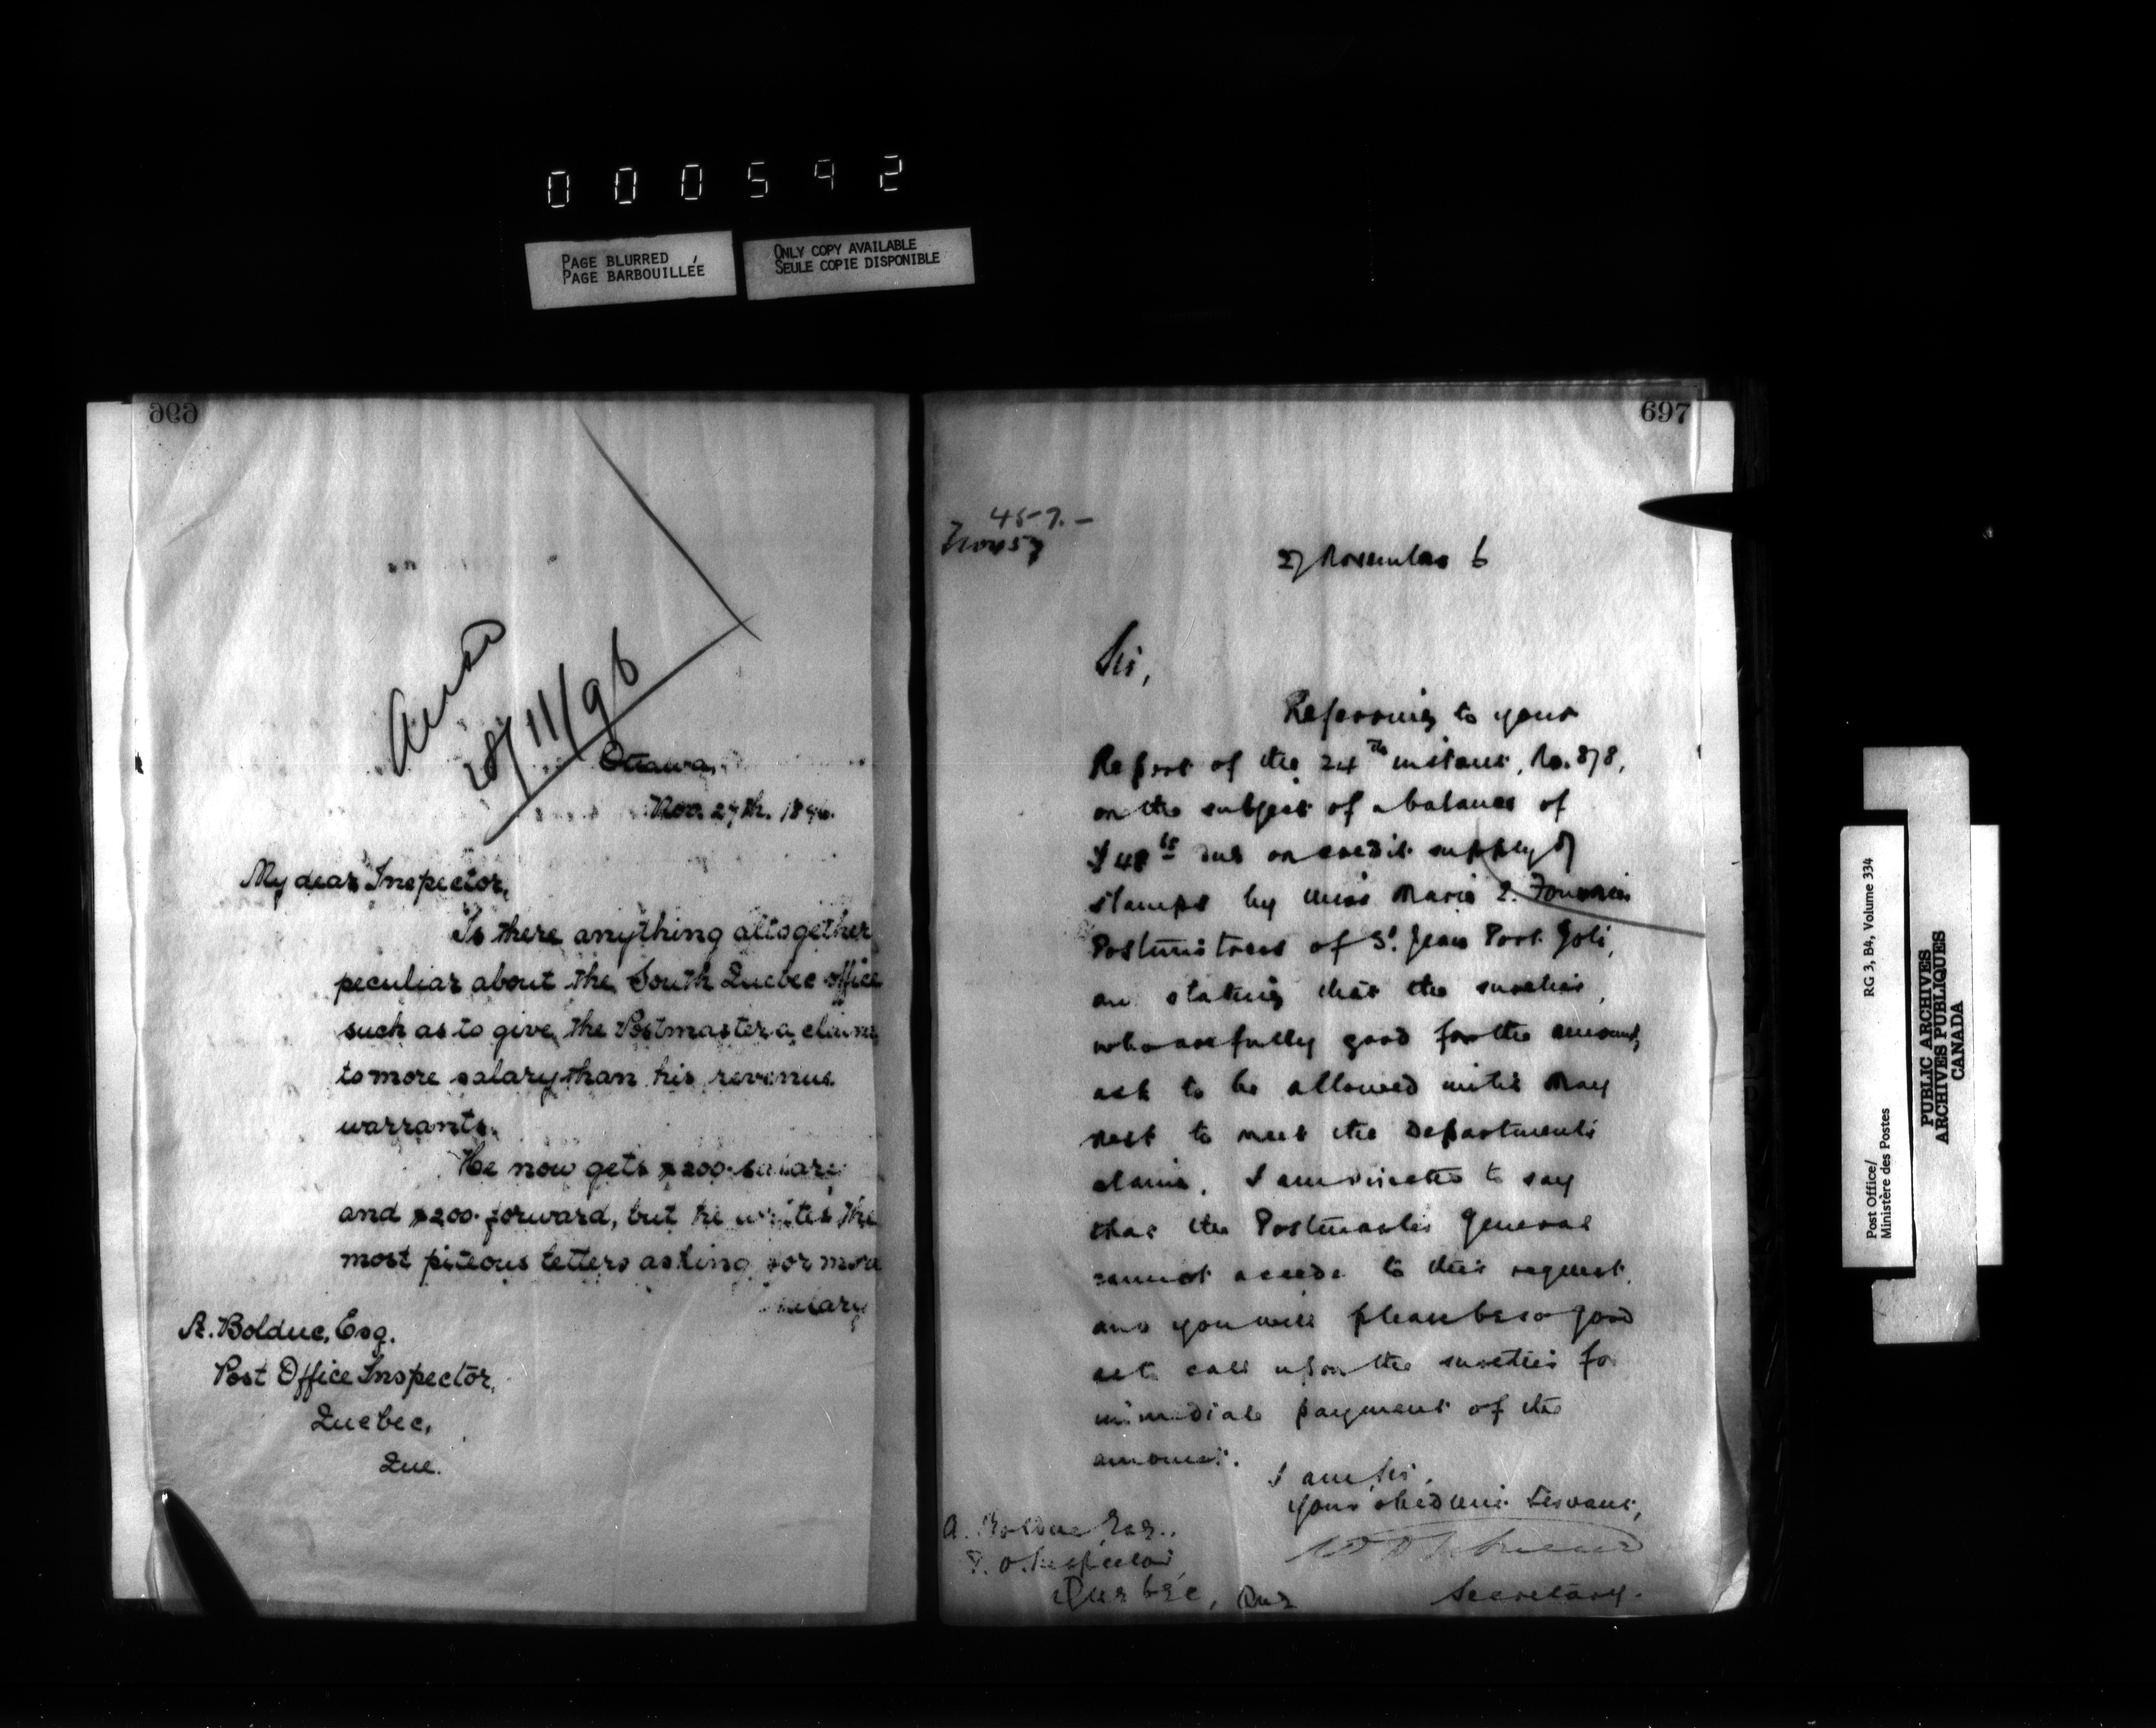 000592
PAGE BLURRED
PAGE BARBOUILLÉE
ONLY COPY AVAILABLE
SEULE COPIE DISPONIBLE
696
28/11/96
Ottawa,
Nov. 27th. 1896.
My dear Inspector,
Is there anything altogether
peculiar about the South Quebec office
such as to give the Postmaster a claim
to more salary than his revenue
warrants.
He now gets $200. salary
and $200. forward, but he writes the
most piteous letters asking for more
salary
A. Bolduc, Esq.
Post Office Inspector,
Quebec,
Que.
697
457.-
27 November 6
Sir,
Referring to your
Report of the 24th instant, No. 878,
on the subject of a balance of
$48 due on credit supply of
stamps by Miss Marie Fournier
Postmistress of St. Jean Port Joli,
an stating that the sureties,
who are fully good for the amount,
ask to be allowed until May
next to meet the Department's
claim, I am directed to say
that the Postmaster General
cannot accede to this request,
and you will please be so good
as to call upon the sureties for
immediate payment of the
amount.
I am, Sir,
Your obedient Servant,
Secretary.
A. Bolduc, Esq.,
P. O. Inspector
Quebec, Que
Post Office/
Ministère des Postes
RG 3, B4, Volume 334
PUBLIC ARCHIVES
ARCHIVES PUBLIQUES
CANADA